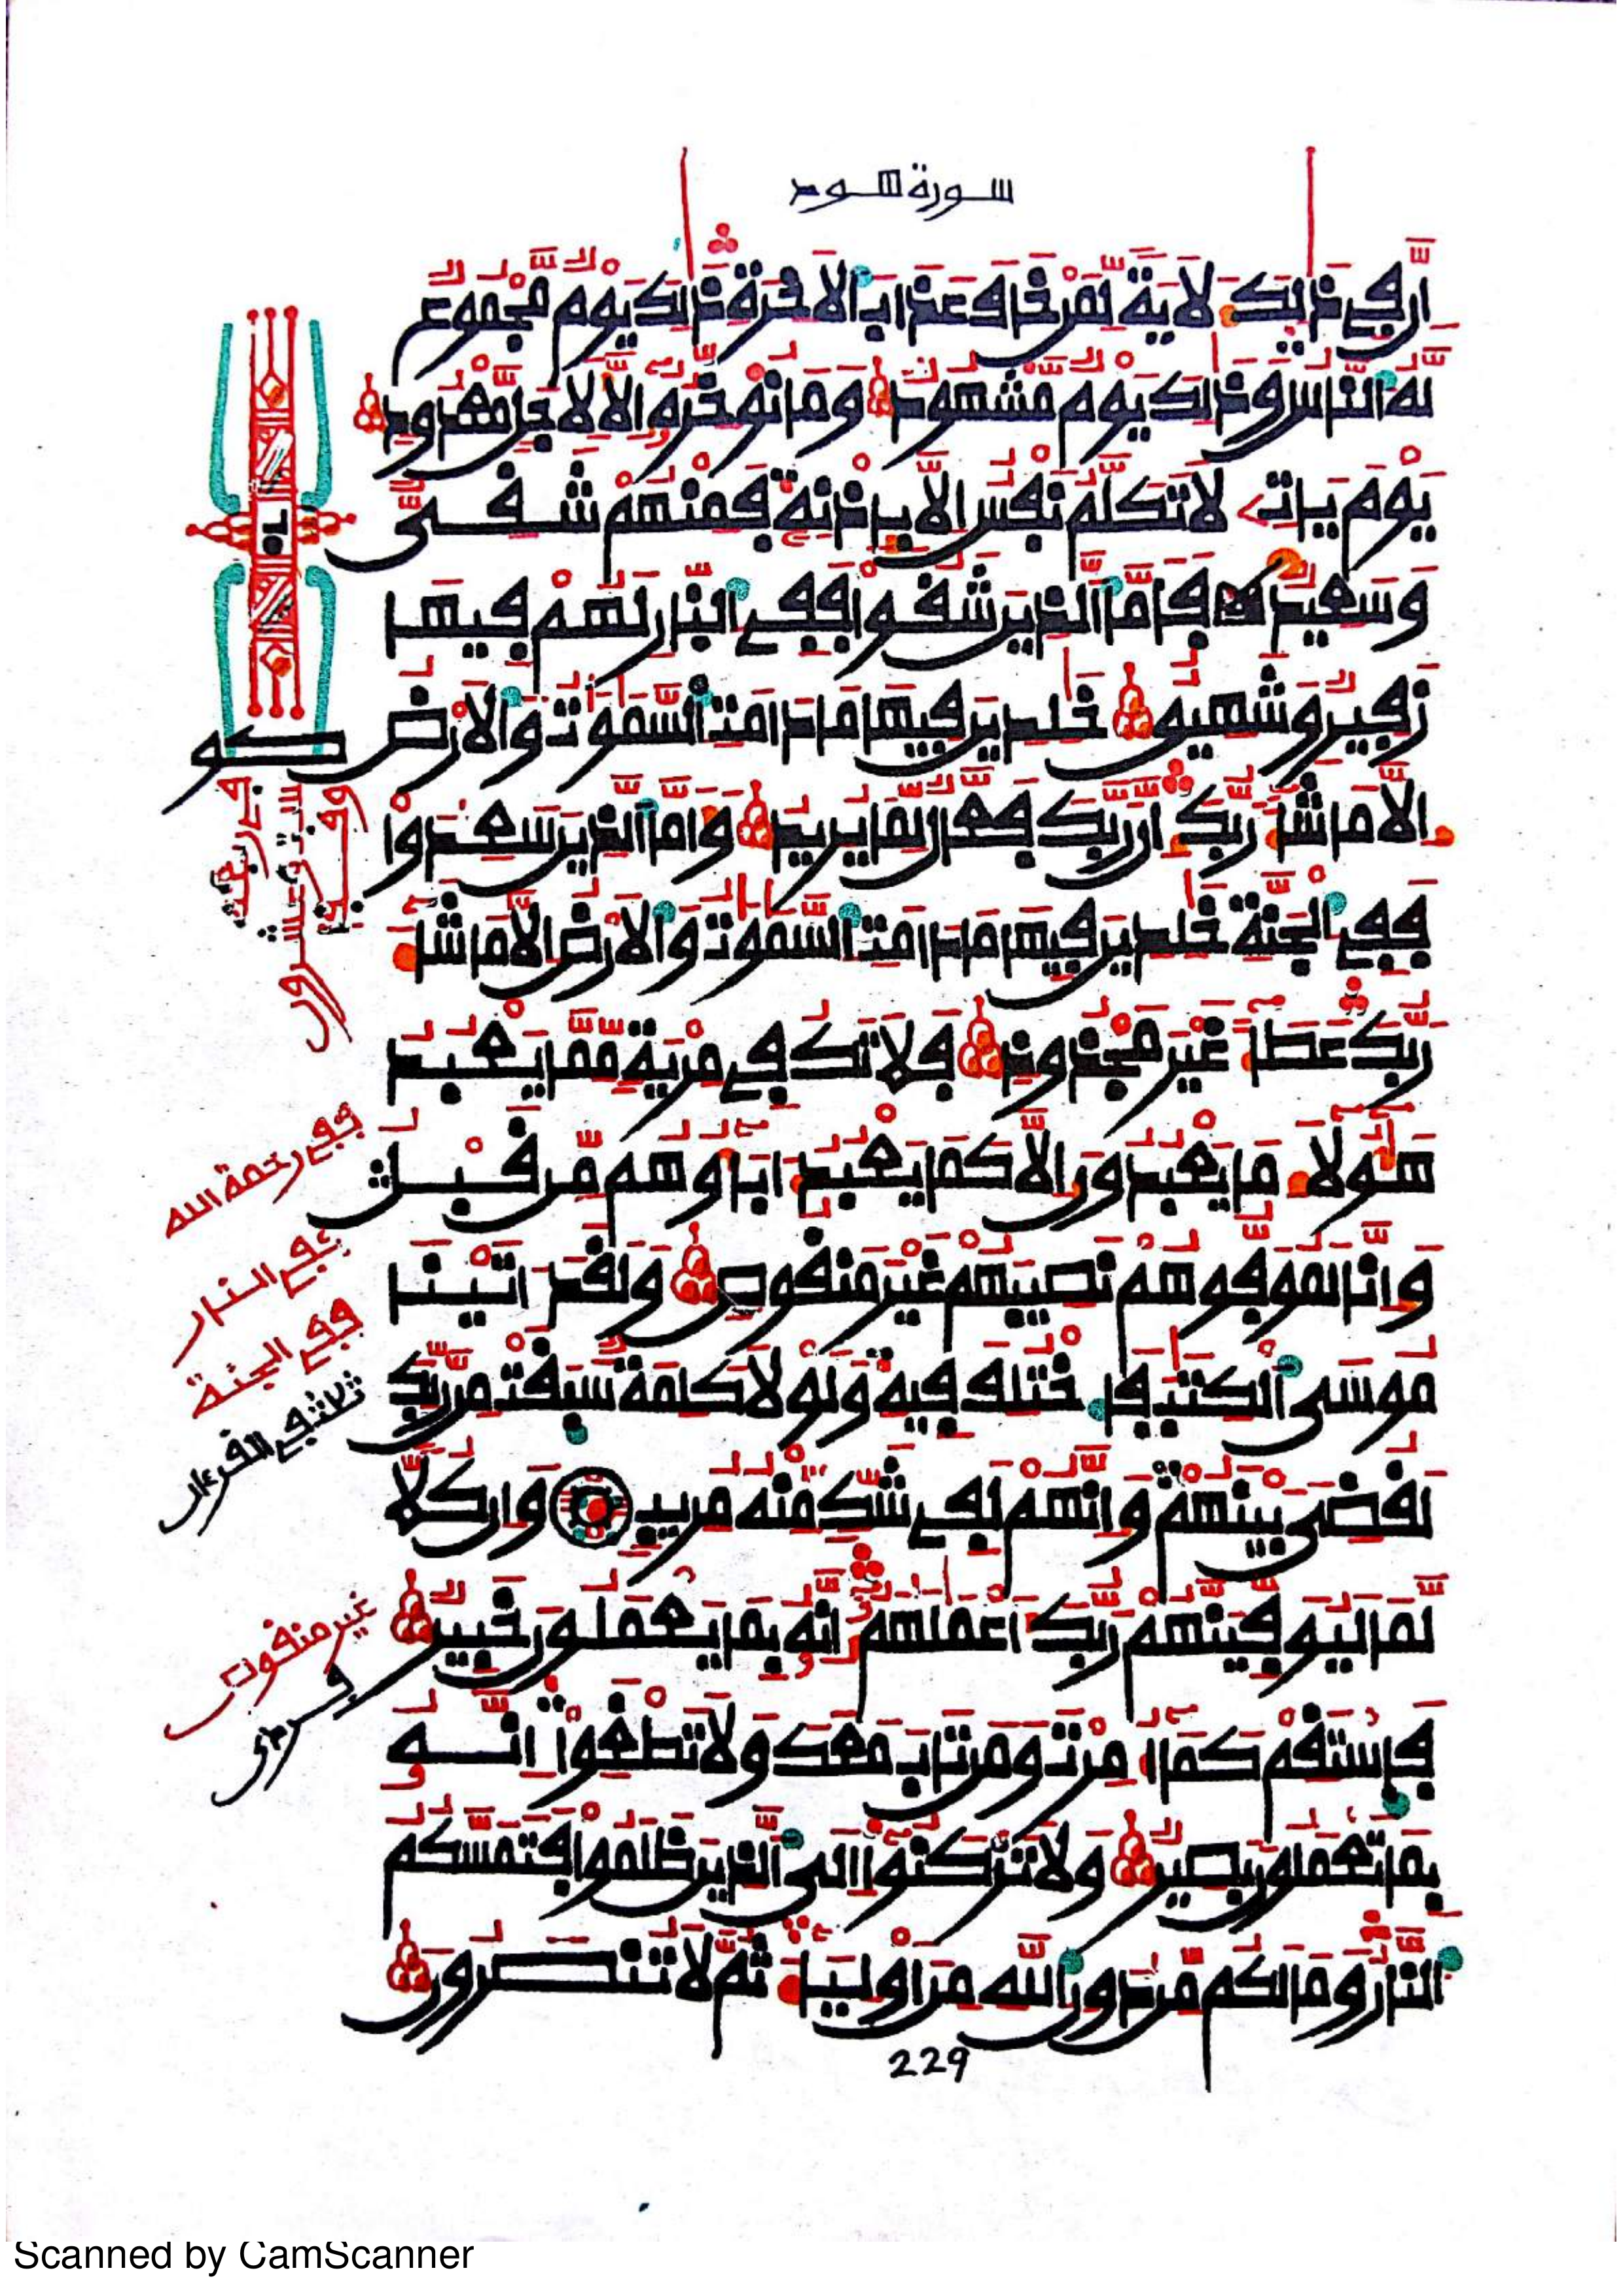 سورة هود
ان في ذلك لاية لمن خاف عذاب الاخرة ذلك يوم مجموع
له الناس وذلك يوم مشهود وما نوخره الا لاجل معدود
يوم يات لا تكلم نفس الا باذنه فمنهم شقي
وسعيد فاما الذين شقوا ففي النار لهم فيها
زفير وشهيق خلدين فيها ما دامت السموت والارض
الا ما شا ربك ان ربك فعال لما يريد واما الذين سعدوا
ففي الجنة خلدين فيها ما دامت السموت والارض الا ما شا
ربك عطا غير مجذوذ فلا تك في مرية مما يعبد
هولا ما يعبدون الا كما يعبد اباوهم من قبل
وانا لموفوهم نصيبهم غير منقوص ولقد اتينا
موسى الكتب فاختلف فيه ولولا كلمة سبقت من ربك
لقضي بينهم وانهم لفي شك منه مريب وان كلا
لما ليوفينهم ربك اعملهم انه بما يعملون خبير
فاستقم كما امرت ومن تاب معك ولا تطغوا انه
بما تعملون بصير ولا تركنوا الى الذين ظلموا فتمسكم
النار وما لكم من دون الله من اوليا ثم لا تنصرون
ففي رحمة الله
ففي النار
ففي الجنة
ثلاث في القرءان
غير منقوص
229
Scanned by CamScanner